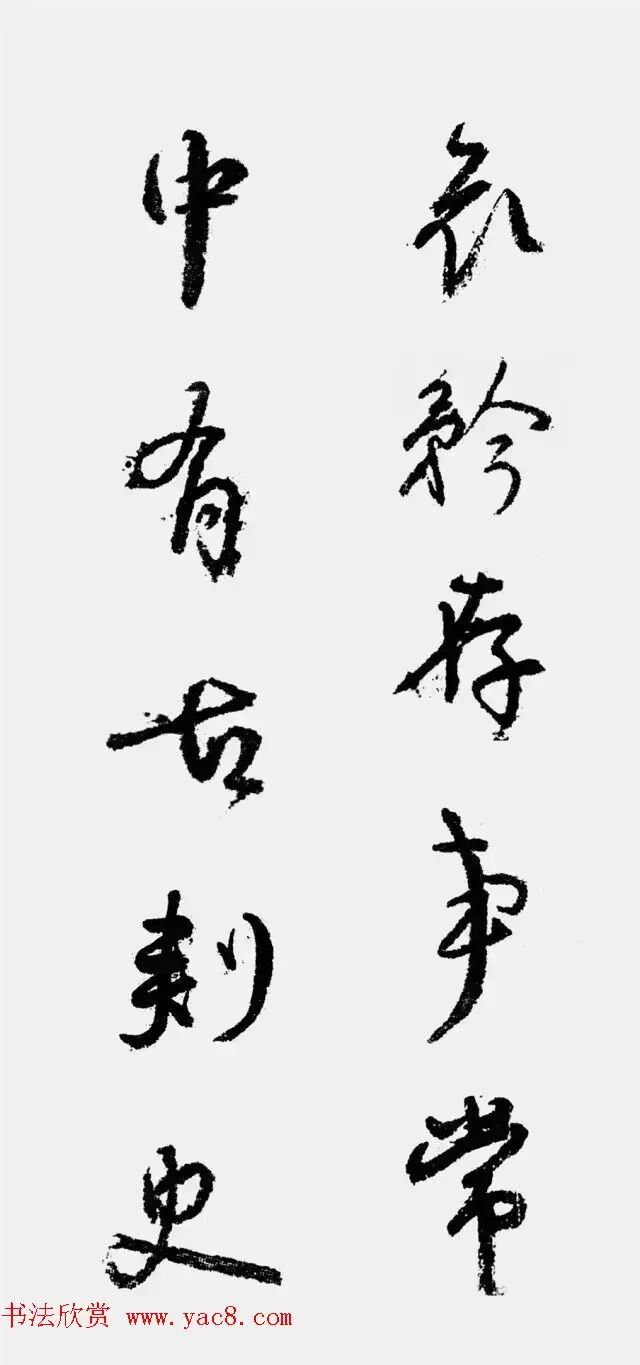 哀矜存事常
中有古刺史
书法欣赏 www.yac8.com